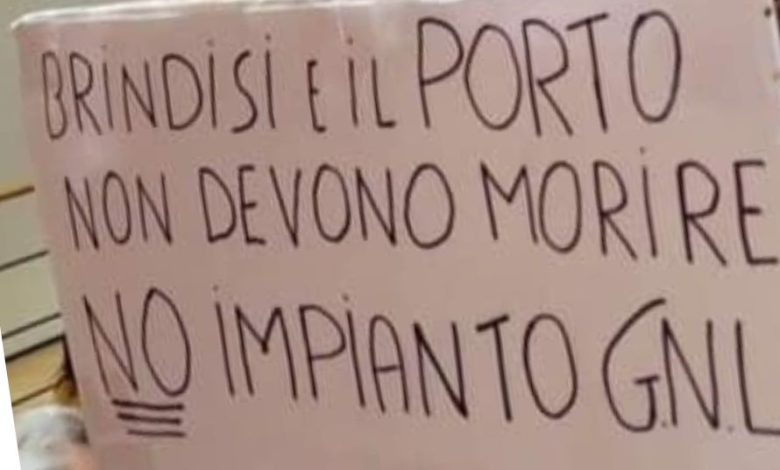 BRINDISI E IL PORTO
NON DEVONO MORIRE
NO IMPIANTO G.N.L